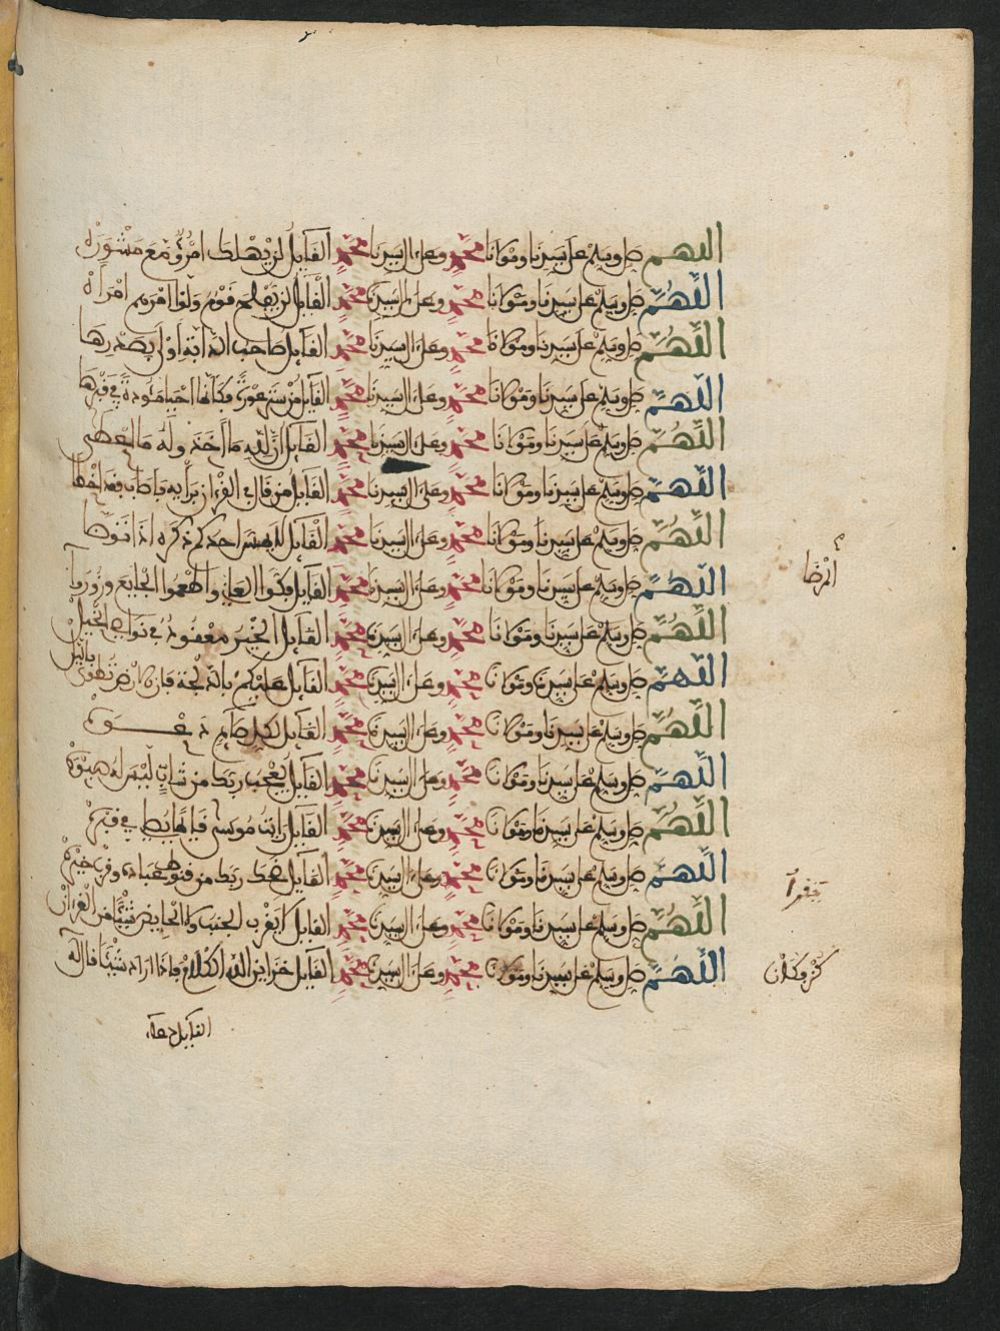 اللهم صل وسلم على سيدنا ومولانا محمد وعلى ءال سيدنا محمد القايل لن يهلك امرؤ مع مشورة
اللهم صل وسلم على سيدنا ومولانا محمد وعلى ءال سيدنا محمد القايل لن يفلح قوم ولوا امرهم امرأة
اللهم صل وسلم على سيدنا ومولانا محمد وعلى ءال سيدنا محمد القايل صاحب الدابة أولى بصدرها
اللهم صل وسلم على سيدنا ومولانا محمد وعلى ءال سيدنا محمد القايل من ستر عورة فكأنما احيا موءودة في قبرها
اللهم صل وسلم على سيدنا ومولانا محمد وعلى ءال سيدنا محمد القايل ان لله ما أخذ وله ما اعطى
اللهم صل وسلم على سيدنا ومولانا محمد وعلى ءال سيدنا محمد القايل من قال في القرءان برأيه فاصاب فقد اخطا
اللهم صل وسلم على سيدنا ومولانا محمد وعلى ءال سيدنا محمد القايل لا يمس احدكم ذكره اذا توضا
اللهم صل وسلم على سيدنا ومولانا محمد وعلى ءال سيدنا محمد القايل فكوا العاني واطعموا الجايع وزوروا
المرضا
اللهم صل وسلم على سيدنا ومولانا محمد وعلى ءال سيدنا محمد القايل الخير معقود في نواصي الخيل
اللهم صل وسلم على سيدنا ومولانا محمد وعلى ءال سيدنا محمد القايل عليكم بالدلجة فان الارض تطوى بالليل
اللهم صل وسلم على سيدنا ومولانا محمد وعلى ءال سيدنا محمد القايل لكل صايم دعوة
اللهم صل وسلم على سيدنا ومولانا محمد وعلى ءال سيدنا محمد القايل يعجب ربك من شاب ليس له صبوة
اللهم صل وسلم على سيدنا ومولانا محمد وعلى ءال سيدنا محمد القايل رايت موسى قايما يصلي في قبره
اللهم صل وسلم على سيدنا ومولانا محمد وعلى ءال سيدنا محمد القايل ضحك ربك من قنوط عباده وقرب خيره
اللهم صل وسلم على سيدنا ومولانا محمد وعلى ءال سيدنا محمد القايل لا يقرب الجنب ولا الحايض شيئا من القرءان
اللهم صل وسلم على سيدنا ومولانا محمد وعلى ءال سيدنا محمد القايل خزاين الله الكلام فاذا اراد شيئا قال له
كن فكان
القايل دعاء